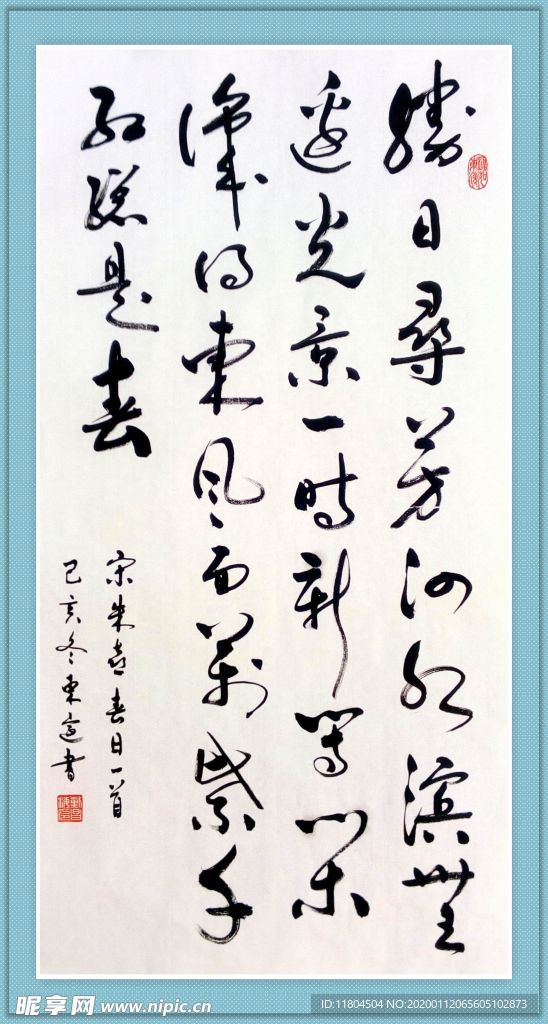 勝日尋芳泗水滨無
邊光景一時新等閑
識得東風面萬紫千
紅總是春
宋朱熹春日一首
己亥冬東書
昵享网 www.nipic.cn
ID:11804504 NO:20200112065605102873